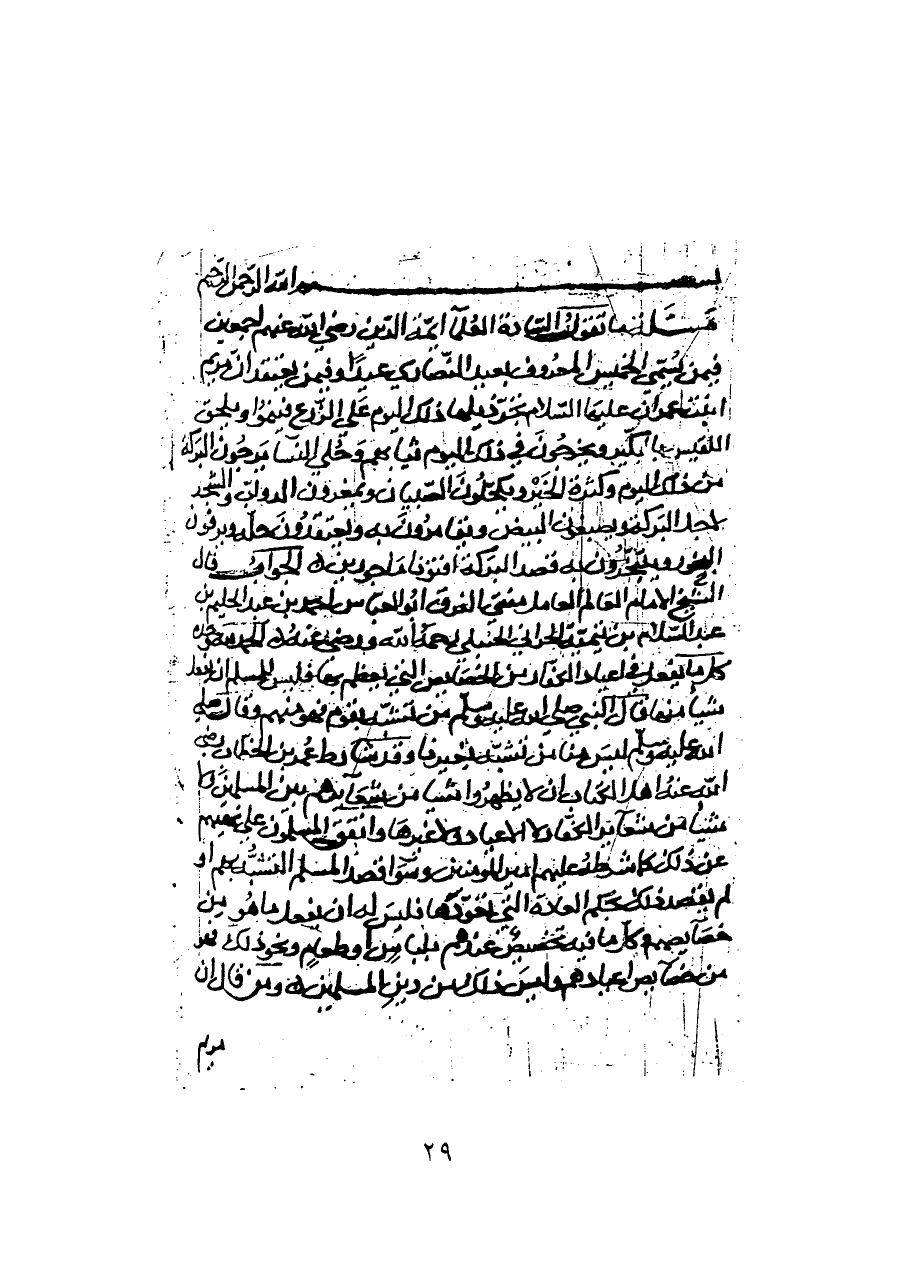 بسم الله الرحمن الرحيم
مسئلة ما تقول السادة العلما ايمة الدين رضي الله عنهم اجمعين
فيمن يسمي الخميس المعروف بعيد النصارى عيدا وفيمن يعتقد ان مريم
ابنت عمران عليها السلام تجر ذيلها ذلك اليوم على الزرع فينموا ويلحق
اللقيس بالبكير ويخرجون في ذلك اليوم ثيابهم وحلي النسا يرجون البركة
من ذلك اليوم وكثرة الخير ويكحلون الصبيان ويمغرون الدواب والشجر
لاجل البركة ويصبغون البيض ويقامرون به ويعتقدون حله ويرقون
البخور ويتبخرون به قصد البركة افتونا ماجورين الجواب قال
الشيخ الامام العالم العامل مفتي الفرق ابو العباس احمد بن عبد الحليم بن
عبد السلام بن تيمية الحراني الحنبلي رحمه الله ورضي عنه الحمد لله وحده
كل ما يفعل في اعياد الكفار من الخصايص التي يعظم بها فليس للمسلم ان يفعل
شيا منها قال النبي صلى الله عليه وسلم من تشبه بقوم فهو منهم وقال صلى
الله عليه وسلم ليس منا من تشبه بغيرنا وقد شارط عمر بن الخطاب رضي
الله عنه اهل الكتاب ان لا يظهروا شيا من شعايرهم بين المسلمين لا
شيا من شعاير الكفار لا الاعياد ولا غيرها واتفق المسلمون على نهيهم
عن ذلك كما شرطه عليهم امير المومنين وسوا قصد المسلم التشبه بهم او
لم يقصد ذلك بحكم العادة التي تعودها فليس له ان يفعل ما هو من
خصايصهم وكل ما فيه تخصيص عندهم بلباس او طعام ونحو ذلك فهو
من خصايص اعيادهم وليس ذلك من دين المسلمين ومن قال ان
مريم
٢٩